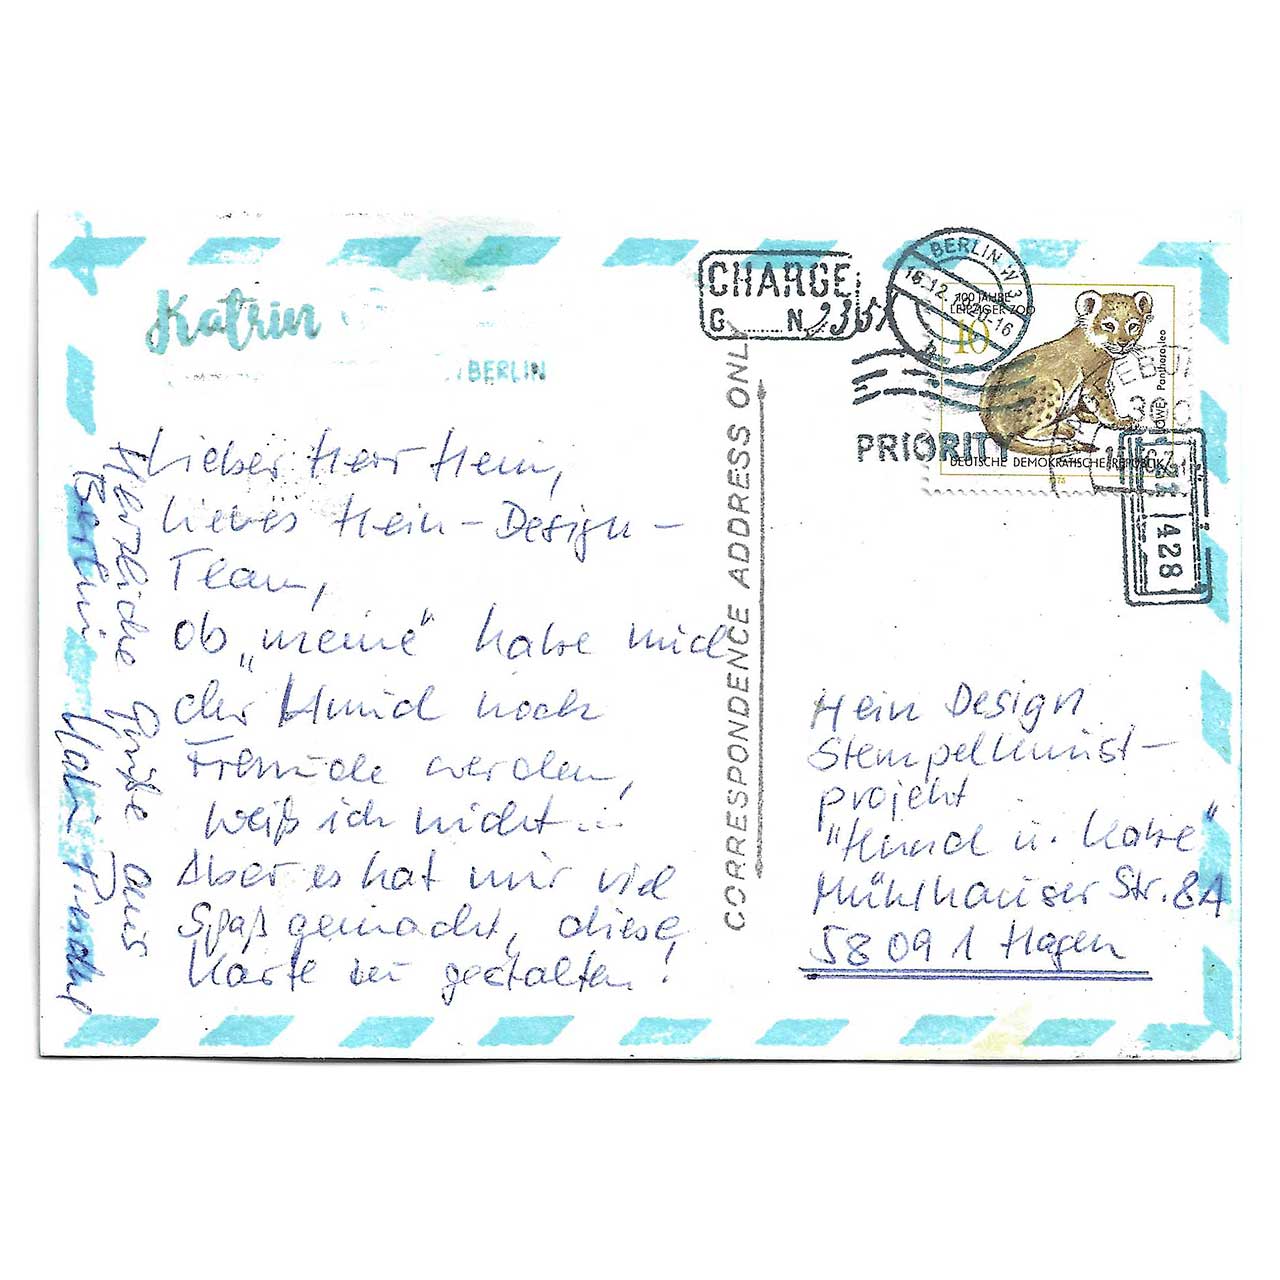 Katrin
BERLIN
Lieber Herr Hein,
liebes Hein-Design-
Team,
ob „meine“ Katze und
der Hund noch
Freunde werden,
weiß ich nicht...
Aber es hat mir viel
Spaß gemacht, diese
Karte zu gestalten!
Herzliche Grüße aus
Berlin
CORRESPONDENCE ADDRESS ONLY
CHARGE
G ...... N
BERLIN W
16.12.
-16
PRIORITY
100 JAHRE
LEIPZIGER ZOO
10
LÖWE Panthera leo
DEUTSCHE DEMOKRATISCHE REPUBLIK
1978
428
Hein Design
Stempelkunst-
projekt
"Hund u. Katze"
Mühlhauser Str. 8A
58091 Hagen